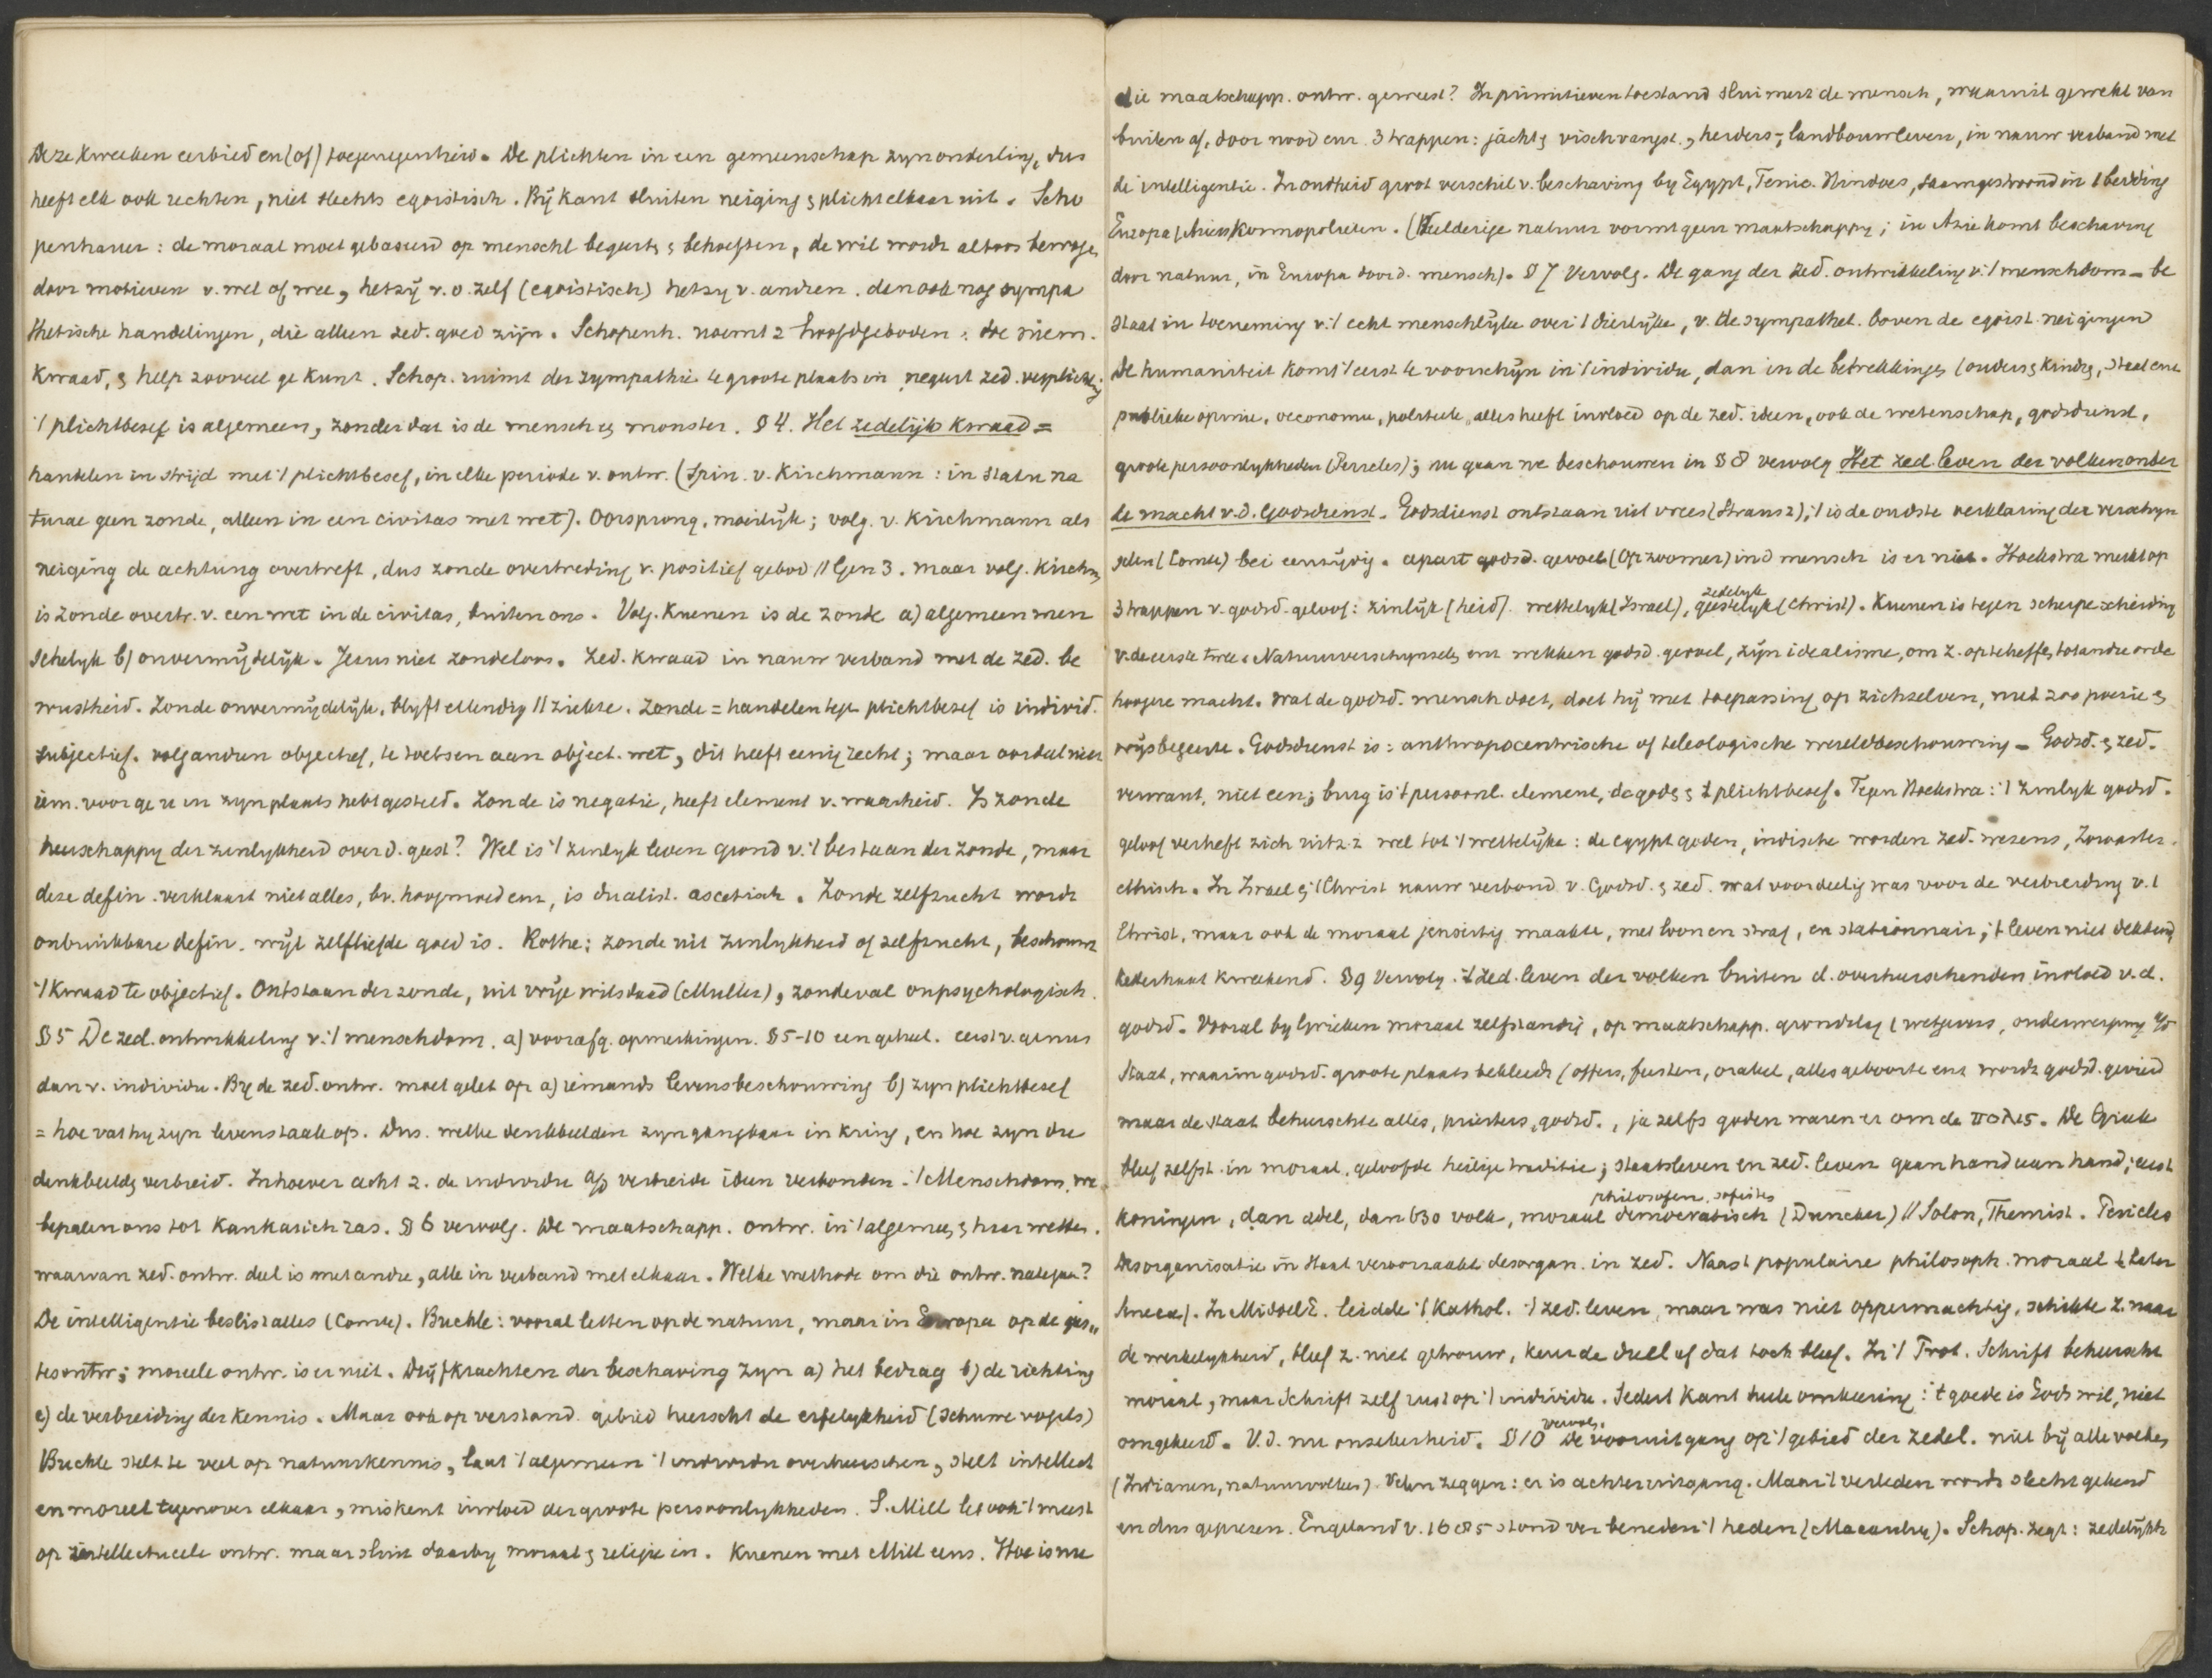 Deze kweeken eerbied en (of) toegenegenheid. De plichten in een gemeenschap zyn onderling, dus
heeft elk ook rechten, niet slechts egoistisch. Bij Kant sluiten neiging & plicht elkaar uit. Scho
penhauer: de moraal moet gebaseerd op menschl begeert & behoeften, de wil wordt altoos bewogen
door motieven v. wel of wee, hetzij v. o. zelf (egoistisch) hetzy v. andren. dan ook nog sympa
thetische handelingen, die alleen zed. goed zijn. Schopenh. noemt 2 hoofdgeboden: doe niem.
kwaad, & help zooveel ge kunt. Schop. ruimt der sympathie te groote plaats in negeert zed. verplichting
't plichtbesef is algemeen, zonder dat is de mensch een monster. § 4. Het zedelijk kwaad =
handelen in strijd met 't plichtbesef, in elke periode v. ontw. (Spin. v. Kirchmann: in statu na
turae geen zonde, alleen in een civitas met wet). Oorsprong, moeilijk; volg. v. Kirchmann als
neiging de achting overtreft, dus zonde overtreding v. positief gebod // Gen 3. maar volg. Kirchm
is zonde overtr. v. een wet in de civitas, buiten ons. Volg. Kuenen is de zonde a) algemeen men
schelyk b) onvermijdelijk. Jezus niet zondeloos. Zed. kwaad in nauw verband met de zed. be
wustheid. Zonde onvermydelijk, blyft ellendig // ziekte. Zonde = handelen tege plichtbesef is individ.
subjectief. volg andren objectief, te toetsen aan object. wet, dit heeft eenig recht; maar oordeel niet
iem. voor ge u in zyn plaats hebt gesteld. Zonde is negatie, heeft element v. waarheid. Is zonde
heerschappy der zinlykheid over d. geest? Wel is 't zinlyk leven grond v. 't bestaan der zonde, maar
deze defin. verklaart niet alles, bv. hoogmoed enz, is dualist. ascetisch. Zonde zelfzucht wordt
onbruikbare defin. wijl zelfliefde goed is. Rothe: zonde uit zinlykheid of zelfzucht, beschouwt
't kwaad te objectief. Ontstaan der zonde, uit vrije wilsdaad (Muller), zondeval onpsychologisch.
§ 5 De zed. ontwikkeling v. 't menschdom. a) voorafg. opmerkingen. § 5-10 een geheel. eerst v. genus
dan v. individu. By de zed. ontw. moet gelet op a) iemands levensbeschouwing b) zyn plichtbesef
= hoe vat hy zyn levenstaak op. Dus. welke denkbeelden zyn gangbaar in kring, en hoe zyn die
denkbeeld verbreid. In hoever acht z. de individu a/d verbreide ideen verbonden. 't Menschdom, we
bepalen ons tot kaukasisch ras. § 6 vervolg. De maatschapp. ontw. in 't algemeen & haar wetten.
waarvan zed. ontw. deel is met andre, alle in verband met elkaar. Welke methode om die ontw. nategaan?
De intelligentie beslist alles (Comte). Buckle: vooral letten op de natuur, maar in Europa op de gees„
tesontw; moreele ontw. is er niet. Drijfkrachten der beschaving zyn a) het bedrag b) de richting
c) de verbreiding der kennis. Maar ook op verstand. gebied heerscht de erfelykheid (schuwe vogels)
Buckle stelt te veel op natuurkennis, laat 't algemeen 't individu overheerschen, stelt intellect
en moreel tegenover elkaar, miskent invloed der groote persoonlykheden. S. Mill let ook 't meest
op intellectueele ontw. maar sluit daarby moraal & religie in. Kuenen met Mill eens. Hoe is nu
die maatschapp. ontw. geweest? In primitieven toestand sluimert de mensch, waaruit gewekt van
buiten af, door nood enz. 3 trappen: jacht & vischvangst, herders-, landbouwleven, in nauw verband met
de intelligentie. In oudheid groot verschil v. beschaving by Egypt, Fenic. Hindoes, saamgestroomd in 1 bedding
Europa (Ariers) Kosmopolieten. (Weelderige natuur vormt geen maatschappy; in Azie komt beschaving
door natuur, in Europa door d. mensch). § 7 Vervolg. De gang der zed. ontwikkeling v. 't menschdom – be
staat in toeneming v. 't echt menschlijke over 't dierlyke, v. de sympathet. boven de egoist. neigingen
De humaniteit komt 't eerst te voorschijn in 't individu, dan in de betrekkingen (ouders & kindren, staat enz
publieke opinie, oeconomie, politiek, alles heeft invloed op de zed. ideen, ook de wetenschap, godsdienst,
groote persoonlykheden (Pericles); nu gaan we beschouwen in § 8 vervolg Het zed. leven der volken onder
de macht v. d. Godsdienst. Godsdienst ontstaan uit vrees (Strausz), 't is de oudste verklaring der verschyn
selen (Comte) bei eenzijdig. apart godsd. gevoel (Opzoomer) in d mensch is er niet. Hoekstra merkt op
3 trappen v. godsd. geloof: zinlijk (heid). wettelyk (Israel), zedelyk geestelyk (Christ). Kuenen is tegen scherpe scheiding
v. de eerste twee. Natuurverschynselen enz wekken godsd. gevoel, zijn idealisme, om z. opteheffen tot andre orde
hoogere macht. Wat de godsd. mensch doet, doet hij met toepassing op zichzelven, met zoo poezie &
wijsbegeerte. Godsdienst is: anthropocentrische of teleologische wereldbeschouwing – Godsd. & zed.
verwant, niet een; brug is 't persoonl. element, de goden & 't plichtbesef. Tegen Hoekstra: 't zinlyk godsd.
geloof verheft zich uit z.z. wel tot 't wettelijke: de egypt goden, indische worden zed. wezens, Zoroaster
ethisch. In Israel & 't Christ nauw verband v. Godsd. & zed. wat voordeelig was voor de verbreiding v. 't
Christ, maar ook de moraal jenseitig maakte, met loon en straf, en stationnair; 't leven niet dekkend
ketterhaat kweekend. § 9 Vervolg. 't zed. leven der volken buiten d. overheerschenden invloed v. d.
godsd. Vooral by Grieken moraal zelfstandig, op maatschapp. grondslag (wetgevers, onderwerping a/d
Staat, waarin godsd. groote plaats bekleedt (offers, feesten, orakel, alles geboorte enz wordt godsd. gevierd
maar de staat beheerschte alles, priesters, godsd., ja zelfs goden waren er om de πολις. De Griek
bleef zelfst. in moraal, geloofde heilige traditie; staatsleven en zed. leven gaan hand aan hand; eerst
koningen, dan adel, dan 630 volk, moraal philosofen sofisten democratisch (Duncker) // Solon, Themist. Pericles
desorganisatie in staat veroorzaakt desorgan. in zed. Naast populaire philosoph. moraal (later
Seneca). In Middel E. leidde 't Kathol. 't zed. leven, maar was niet oppermachtig, schikte z. naar
de werkelykheid, bleef z. niet getrouw, keurde duel af dat toch bleef. In 't Prot. Schrift beheerscht
moraal, maar Schrift zelf rust op 't individu. Sedert Kant heele omkeering: 't goede is Gods wil, niet
omgekeerd. V.d. nu onzekerheid. § 10 vervolg. De vooruitgang op 't gebied der zedel. niet bij alle volken
(Indianen, natuurvolken). Velen zeggen: er is achteruitgang. Maar 't verleden wordt slecht gekend
en dus geprezen. Engeland v. 1685 stond ver beneden 't heden (Macaulay). Schop. zegt: zedelijkh